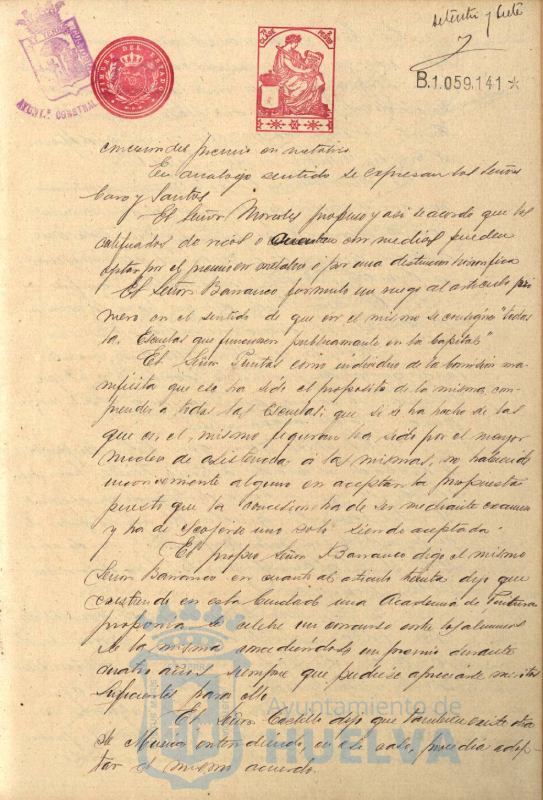 setenta y siete
B.1.059.141 *
TIMBRE DEL ESTADO
AYUNTº CONSTNAL
concesion del premio en metalico
En analogo sentido se expresan los Señores
Caro y Santos
El Señor Morales propuso y asi se acordo que los
calificados de ricos o cuentan con medios pueden
optar por el premio en metalico o por una distincion honorifica
El Señor Barranco formulo un ruego al articulo pri
mero en el sentido de que en el mismo se consigne "todas
las Escuelas que funcionen publicamente en la Capital"
El Señor como individuo de la Comision ma
nifiesta que ese ha sido el proposito de la misma, com-
prender a todas las Escuelas; que si se ha hecho de las
que en el mismo figuran ha sido por el mayor
nucleo de asistencia a las mismas, no habiendo
inconveniente alguno en aceptar la propuesta
puesto que la concesion ha de ser mediante examen
y ha de escogerse uno solo siendo aceptada.
El propio Señor Barranco digo el mismo
Señor Barranco en cuanto al articulo treinta dijo que
existiendo en esta Ciudad una Academia de Pintura
proponia se celebre un concurso entre los alumnos
de la misma concediendole un premio durante
cuatro años siempre que pudiese apreciarse meritos
suficientes para ello
El Señor Castillo dijo que tambien existe otra
de Musica entendiendo, en ese caso, procedia adop-
tar el mismo acuerdo.
Ayuntamiento de
HUELVA